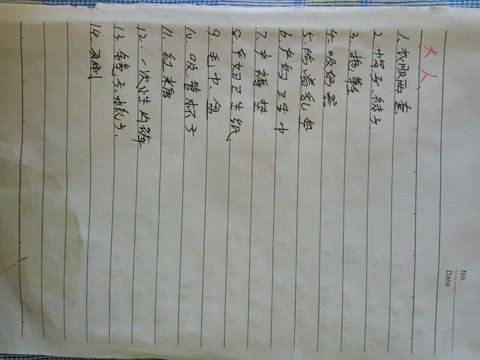 No.
Date
大人
1.衣服两套
2.帽子、袜子、
3.拖鞋
4.吸奶器
5.防溢乳垫
6.产妇卫生巾
7.产褥垫
8.产妇卫生纸
9.毛巾、盆
10.吸管杯子
11.红糖
12.一次性内裤
13.
14.牙刷